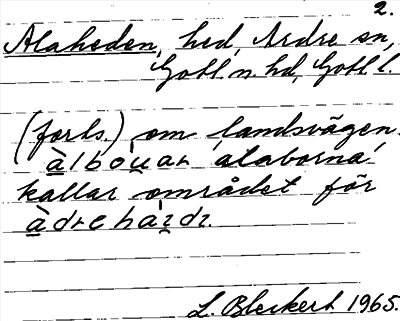 2.
Alaheden, hed, Ardre sn,
Gotl. n. hd, Gotl. l.
(forts.) om landsvägen.
àlbòu̯ar "alaborna"
kallar området för
àdrehà
L. Bleckert 1965.